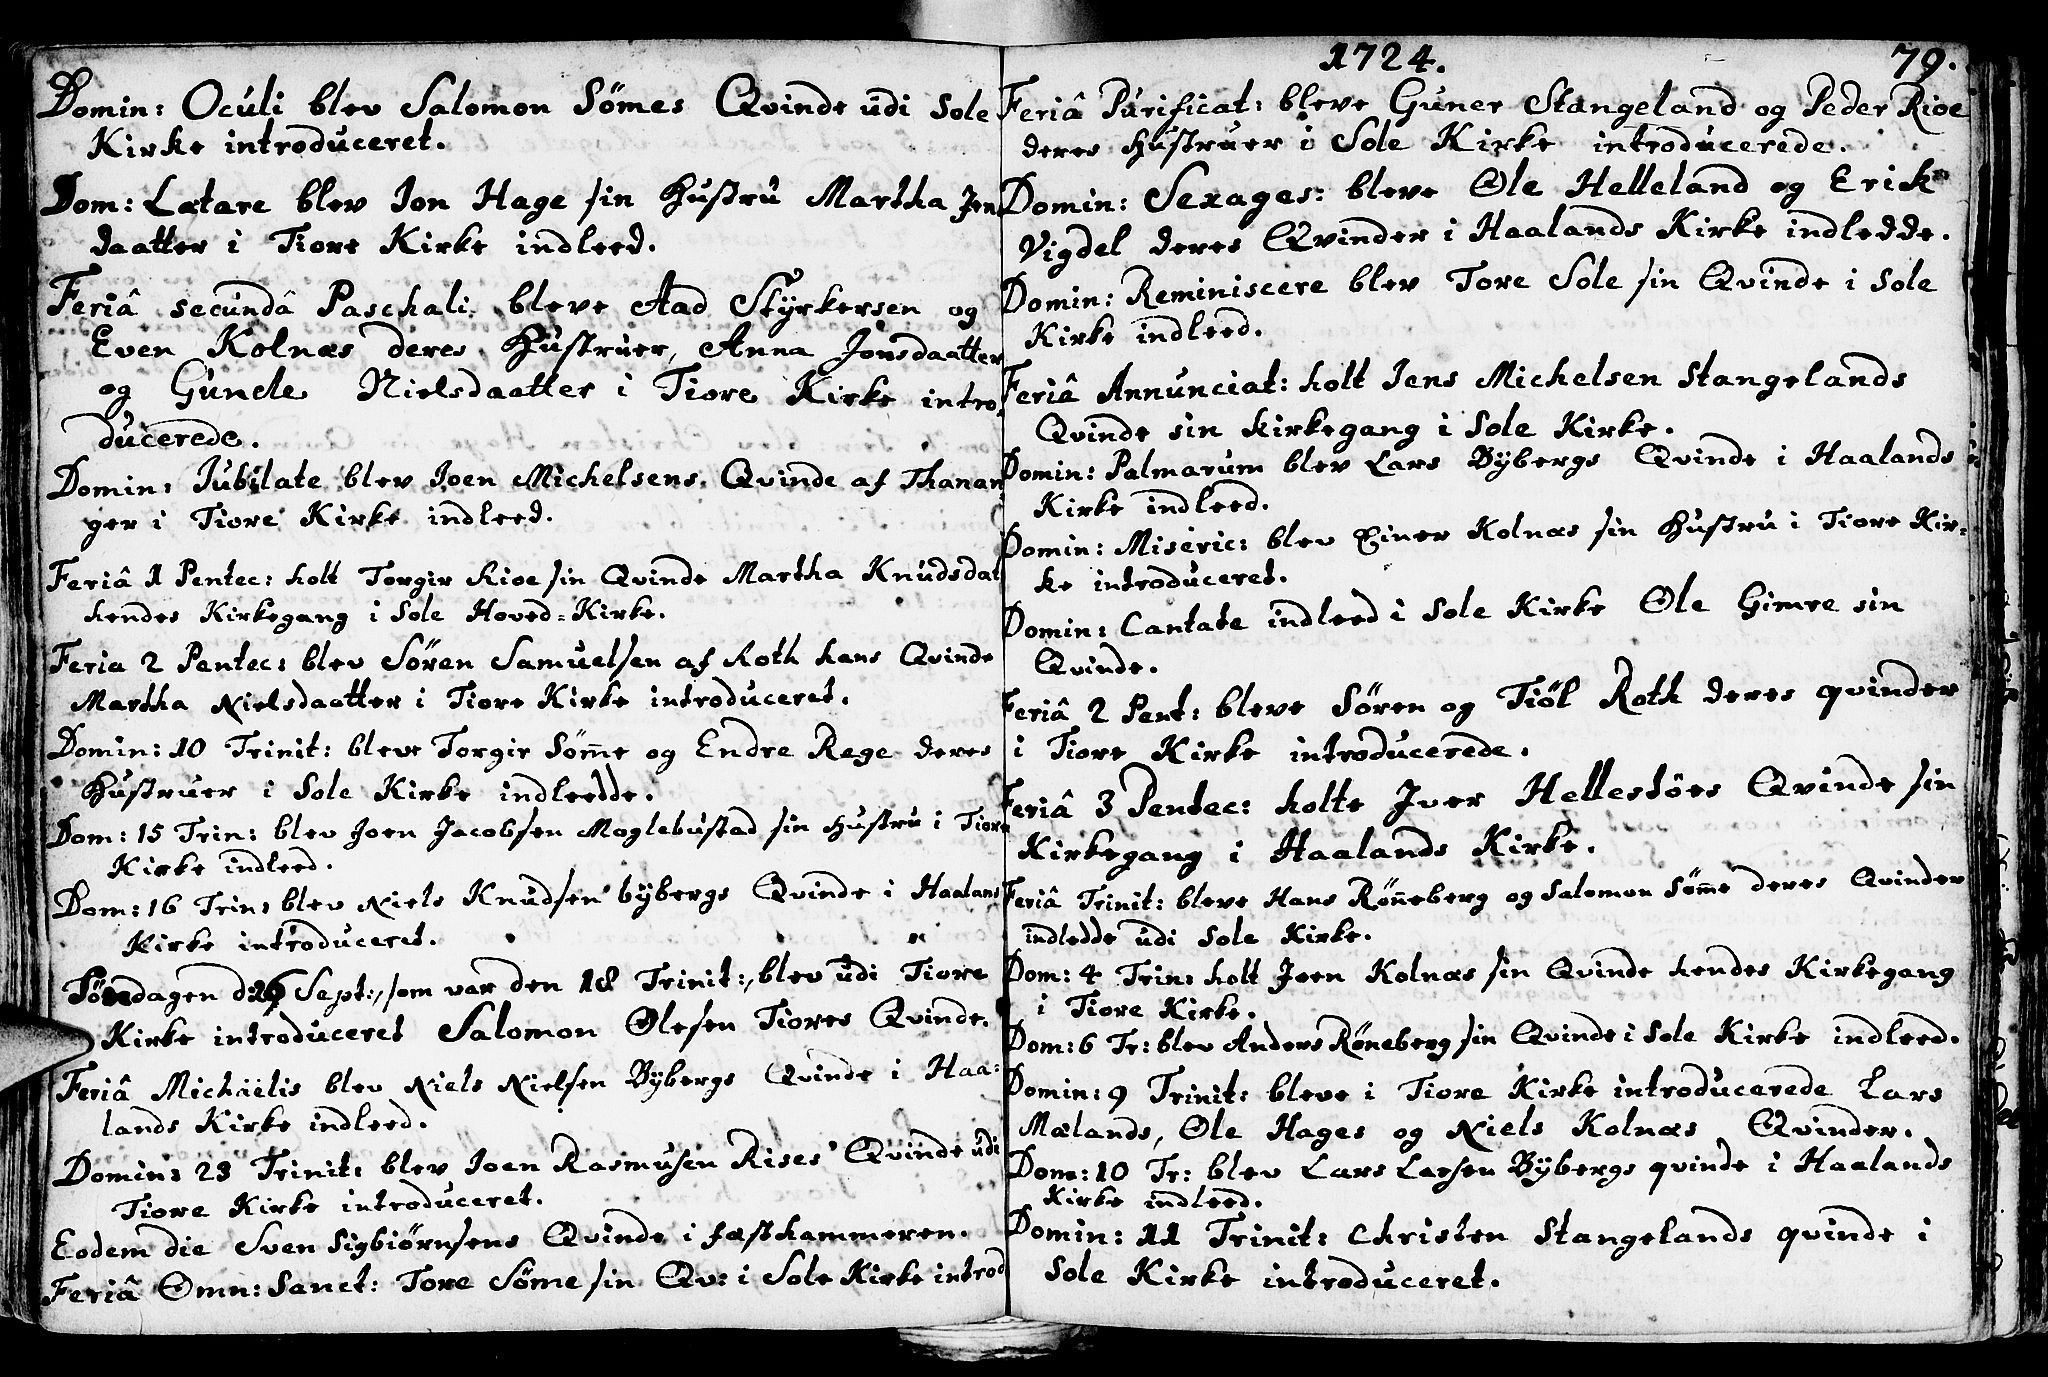 Domin: Oculi blev Salomon Sömes Qvinde udi Sole
Kirke introduceret.
Dom: Lætare blev Jon Hage sin Hustru Martha Jens
daatter i Tiore Kirke indleed.
Feriâ secundâ Paschali bleve Aad Styrkersen og
Even Kolnæs deres Hustruer, Anna Jonsdaatter
og Gunele Nielsdaatter i Tiore Kirke intro
ducerede.
Domin: Jubilate blev Joen Michelsens Qvinde af Thanan
ger i Tiore Kirke indleed.
Feriâ 1 Pentec: holt Torgir Rioe sin Qvinde Martha Knudsdat
hendes Kirkegang i Sole Hoved=Kirke.
Feria 2 Pentec: blev Sören Samuelsen af Roth hans Qvinde
Martha Nielsdaatter i Tiore Kirke introduceret.
Domin: 10 Trinit: bleve Torgir Söm̄e og Endre Rege deres
Hustruer i Sole Kirke indleedde.
Dom: 15 Trin: blev Joen Jacobsen Maglebustad sin Hustru i Tiore
Kirke indleed.
Dom: 16 Trin: blev Niels Knudsen bybergs Qvinde i Haalans
Kirke introduceret.
Söndagen d: 26 Sept:, som var den 18 Trinit:, blev udi Tiore
Kirke introduceret Salomon Olesen Tiores Qvinde.
Feriâ Michaëlis blev Niels Nielsen Bybergs Qvinde i Haa=
lands Kirke indleed.
Domin: 23 Trinit: blev Joen Rasmusen Rises Qvinde udi
Tiore Kirke introduceret.
Eodem die Sven Sigbiörnsens Qvinde i fæsthammeren.
Feriâ Omn: Sanct: Tore Söme sin Qv: i Sole Kirke introd
1724. 79.
Feriâ Purificat: bleve Guner Stangeland og Peder Rioe
deres Hustruer i Sole Kirke introducerede.
Domin: Sexages: bleve Ole Helleland og Erick
Vigdel deres Qvinder i Haalands Kirke indledde.
Domin: Reminiscere blev Tore Sole sin Qvinde i Sole
Kirke indleed.
Feriâ Annunciat: holt Jens Michelsen Stangelands
Qvinde sin kirkegang i Sole Kirke.
Domin: Palmarum blev Lars Bybergs Qvinde i Haalands
Kirke indleed.
Domin: Miseric: blev Einer Kolnæs sin Hustru i Tiore Kir=
ke introduceret.
Domin: Cantate indleed i Sole Kirke Ole Gimre sin
Qvinde.
Feriâ 2 Pent: bleve Sören og Tiöl Roth deres qvinder
i Tiore Kirke introducerede.
Feriâ 3 Pentec: holte Iver Hellestöes Qvinde sin
Kirkegang i Haalands Kirke.
Feriâ Trinit: bleve Hans Rön̄eberg og Salomon Söm̄e deres Qvinder
indledde udi Sole Kirke.
Dom: 4 Trin: holt Joen Kolnæs sin Qvinde hendes Kirkegang
i Tiore Kirke.
Dom: 6 Tr: blev Anders Röneberg sin Qvinde i Sole Kirke indleed.
Domin: 9 Trinit: bleve i Tiore Kirke introducerede Lars
Mælands, Ole Hages og Niels Kolnæs Qvinder.
Dom: 10 Tr: blev Lars Larsen Bybergs qvinde i Haalands
Kirke indleed.
Domin: 11 Trinit: Christen Stangelands qvinde i
Sole Kirke introduceret.